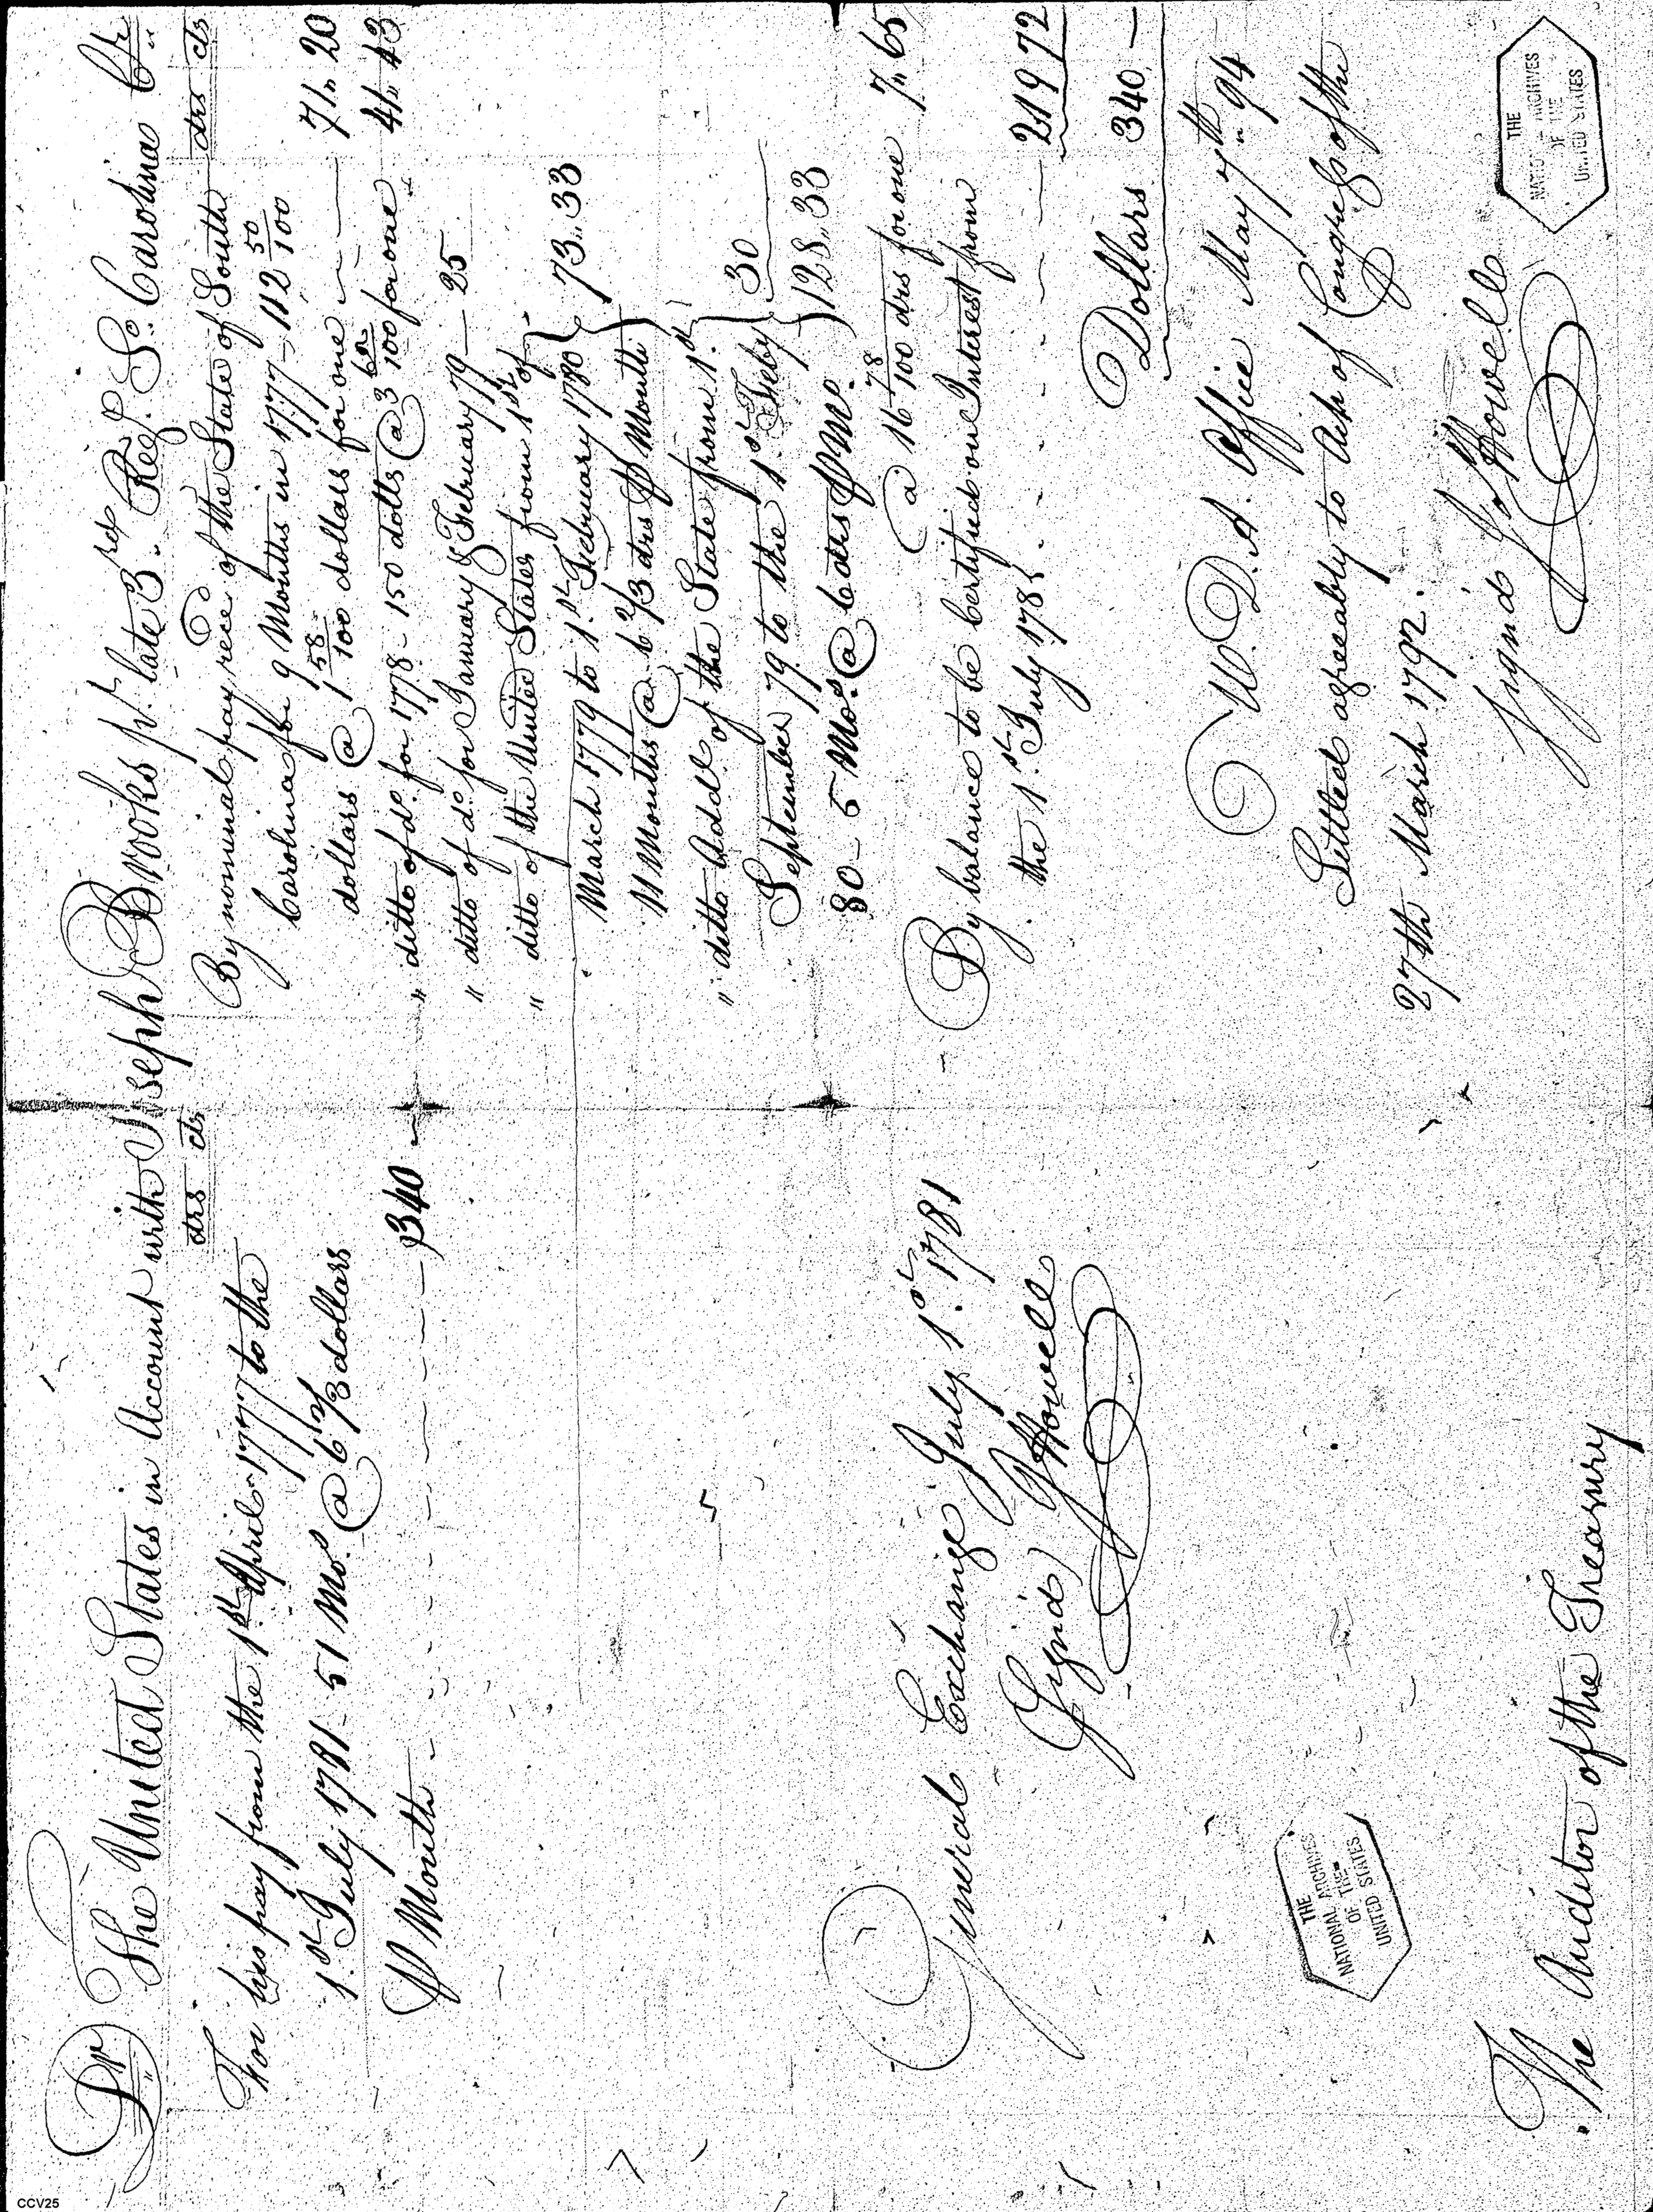 Dr The United States in Account with Joseph Brooks pt. late 3rd Reg. So. Carolina Cr
drs cts
For his pay from the 1st April 1777 to the
1st July 1781 - 51 Mos. @ 6 2/3 dollars
P Month - 340 -
General Exchange July 1st 1781
Signd J Howell
The Auditor of the Treasury
drs cts
By nominal pay, recd of the State of South
Carolina for 9 Months in 1777 - 112 50/100
dollars @ 1 58/100 dollars for one - 71 " 20
" ditto of do. for 1778 - 150 dolls @ 3 62/100 for one 41 " 43
" ditto of do. for January & February 79 - 25
" ditto of the United States from 1st of
March 1779 to 1st February 1780
11 Months @ 6 2/3 drs P Month } 73 " 33
" ditto Addl. of the State from 1st
September 79 to the 1st Feby
80 - 5 Mos. @ 6 drs P Mo. } 30
128 " 33
@ 16 78/100 drs for one 7 " 65
By balance to be Certified on Interest from
the 1st July 1781 - 219 72
Dollars 340 -
W. D. A. Office May 7th " 94
Settled agreeably to Act of Congress of the
27th March 1792.
Signd J Howell
THE
NATIONAL ARCHIVES
OF THE
UNITED STATES
THE
NATIONAL ARCHIVES
OF THE
UNITED STATES
CCV25